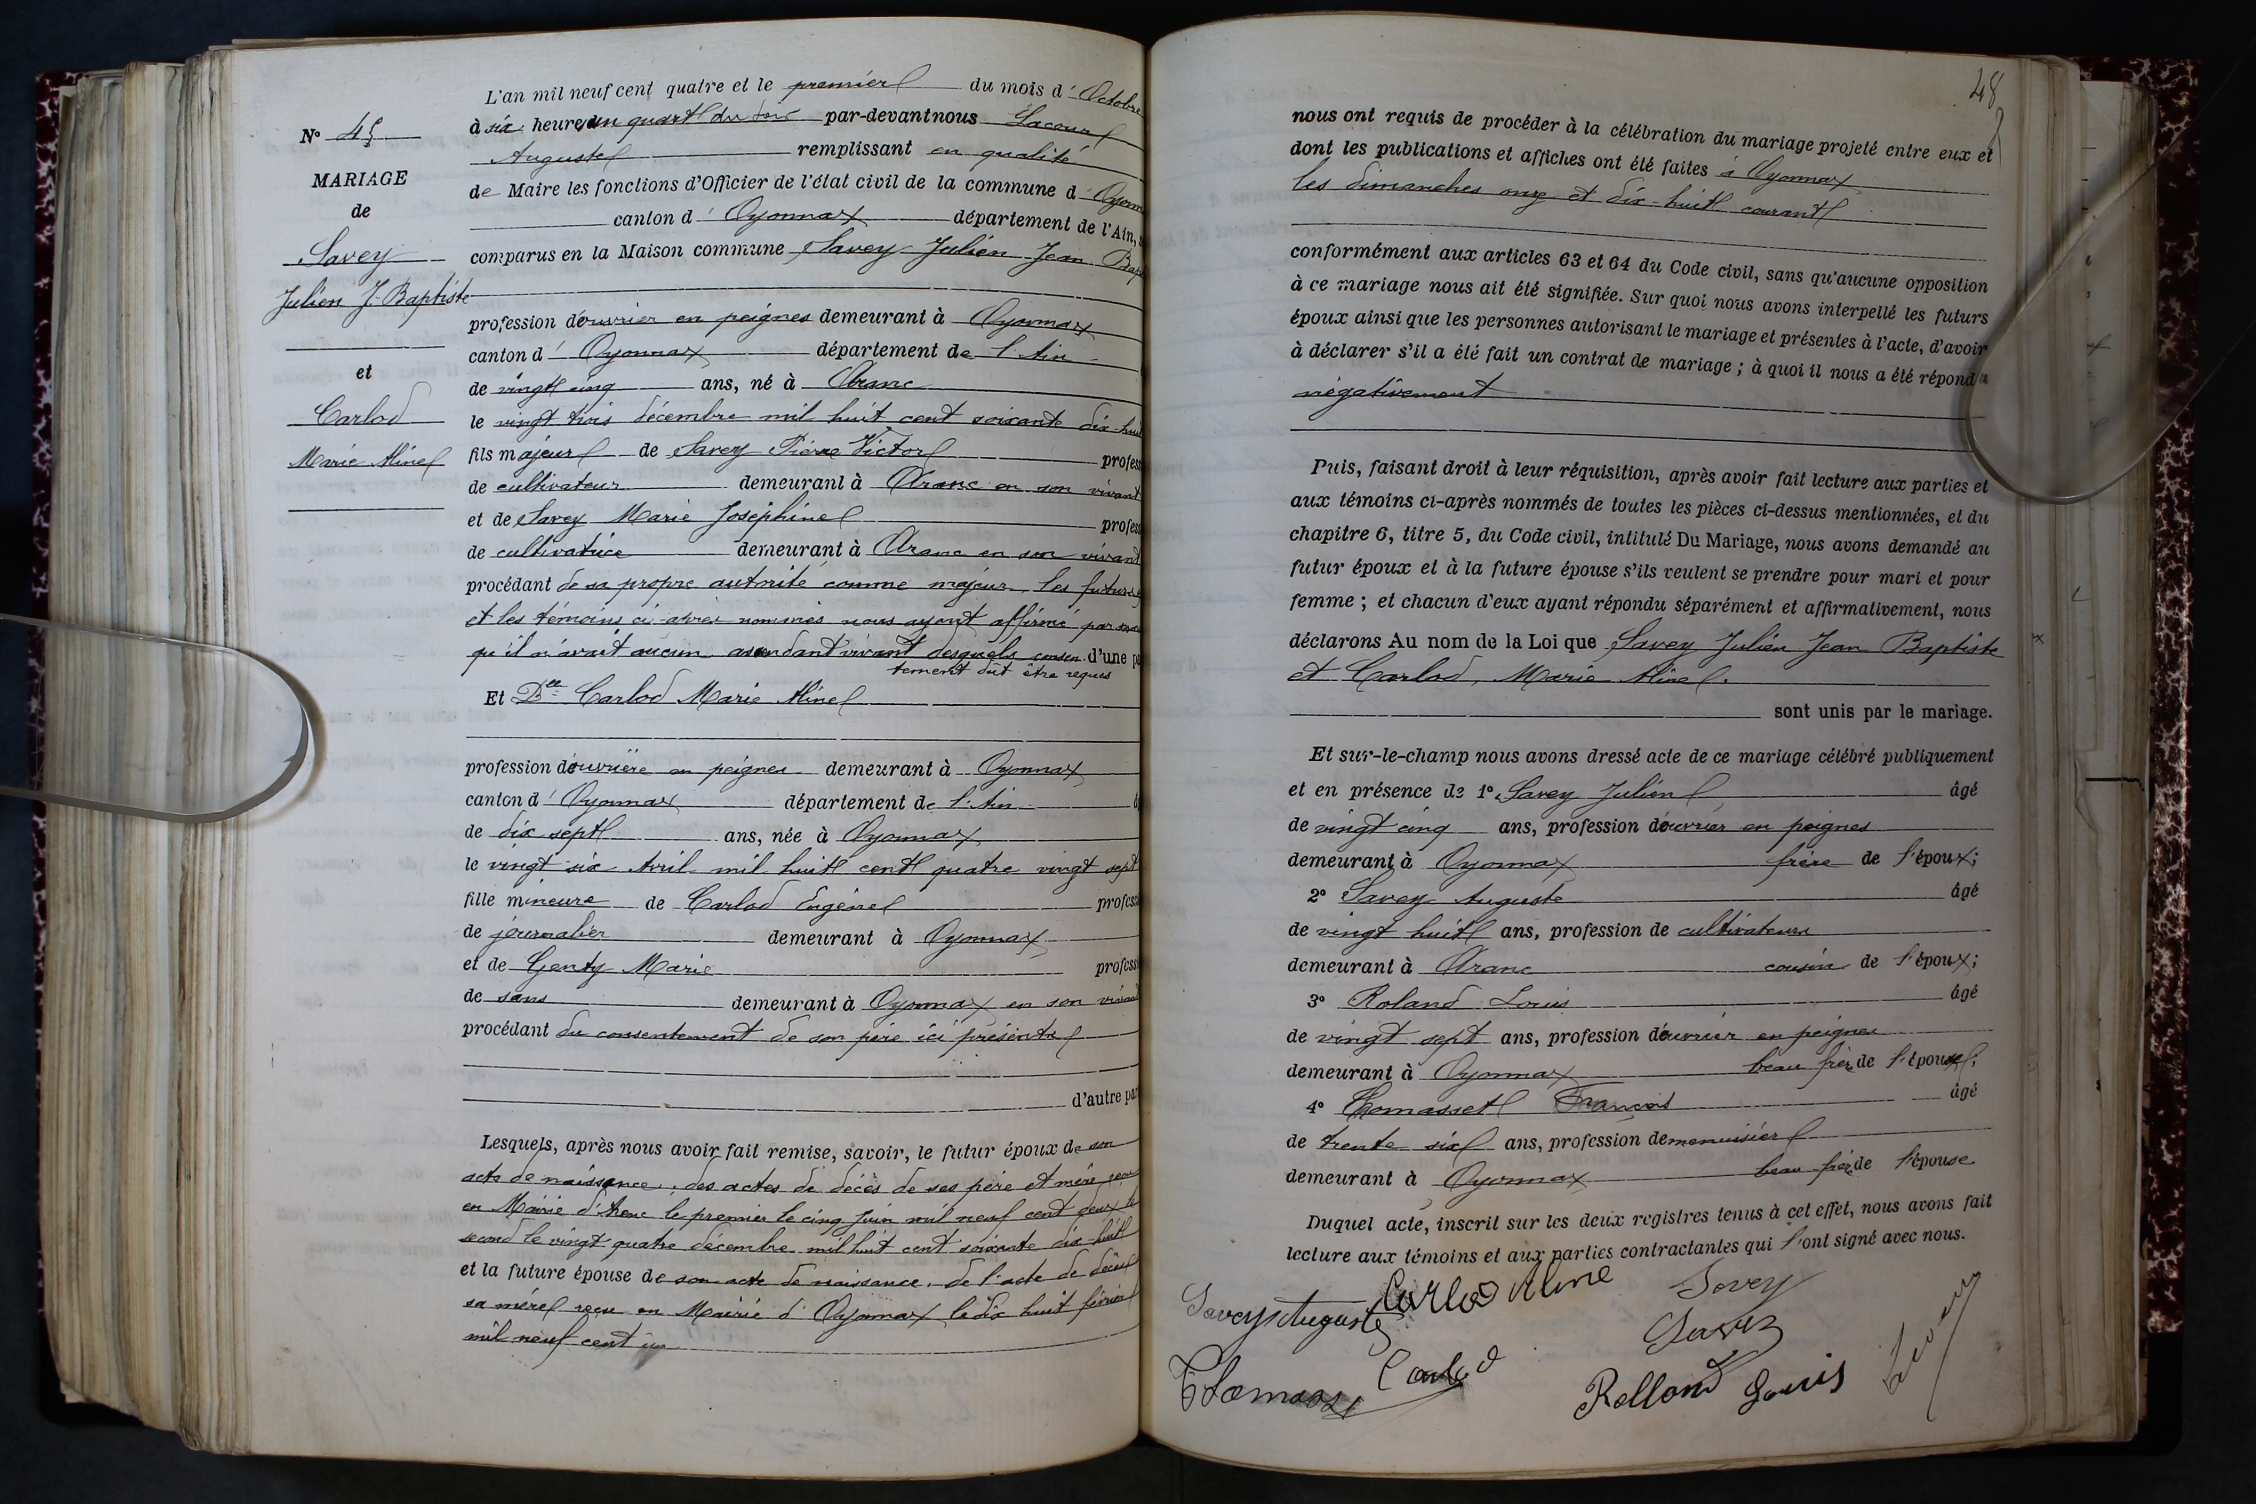 N° 45
MARIAGE
de
Savey
Julien J-Baptiste
et
Carlod
Marie Aline
L'an mil neuf cent quatre et le premier du mois d'Octobre
à six heures un quart du soir par-devant nous Lacour
Auguste remplissant en qualité
de Maire les fonctions d'Officier de l'état civil de la commune d'Oyonn
canton d'Oyonnax département de l'Ain, s
comparus en la Maison commune Savey Julien Jean Bap
profession d'ouvrier en peignes demeurant à Oyonnax
canton d'Oyonnax département de l'Ain
de vingt cinq ans, né à Aranc
le vingt trois décembre mil huit cent soixante dix-huit
fils majeur de Savey Pierre Victor profess
de cultivateur demeurant à Aranc en son vivant
et de Savey Marie Joséphine profess
de cultivatrice demeurant à Aranc en son vivant
procédant de sa propre autorité comme majeur, les futurs
et les témoins ci-après nommés nous ayant affirmé par
qu'il n'avait aucun ascendant vivant desquels consen d'une pa
tement dût être requis
Et Dlle Carlod Marie Aline
profession d'ouvrière en peignes demeurant à Oyonnax
canton d'Oyonnax département de l'Ain
de dix sept ans, née à Oyonnax
le vingt six Avril mil huit cent quatre vingt sept
fille mineure de Carlod Eugène profess
de journalier demeurant à Oyonnax
et de Genty Marie profess
de sans demeurant à Oyonnax en son vivant
procédant du consentement de son père ici présent
d'autre par
Lesquels, après nous avoir fait remise, savoir, le futur époux de son
acte de naissance, des actes de décès de ses père et mère
en Mairie d'Aranc le premier le cinq Juin mil neuf cent deux le
second le vingt quatre décembre mil huit cent soixante dix-huit
et la future épouse de son acte de naissance, de l'acte de décès
sa mère reçu en Mairie d'Oyonnax le dix huit février
mil neuf cent un
48
nous ont requis de procéder à la célébration du mariage projeté entre eux et
dont les publications et affiches ont été faites à Oyonnax
les dimanches onze et dix-huit courant
conformément aux articles 63 et 64 du Code civil, sans qu'aucune opposition
à ce mariage nous ait été signifiée. Sur quoi nous avons interpellé les futurs
époux ainsi que les personnes autorisant le mariage et présentes à l'acte, d'avoir
à déclarer s'il a été fait un contrat de mariage ; à quoi il nous a été répondu
négativement
Puis, faisant droit à leur réquisition, après avoir fait lecture aux parties et
aux témoins ci-après nommés de toutes les pièces ci-dessus mentionnées, et du
chapitre 6, titre 5, du Code civil, intitulé Du Mariage, nous avons demandé au
futur époux et à la future épouse s'ils veulent se prendre pour mari et pour
femme ; et chacun d'eux ayant répondu séparément et affirmativement, nous
déclarons Au nom de la Loi que Savey Julien Jean Baptiste
et Carlod, Marie Aline.
sont unis par le mariage.
Et sur-le-champ nous avons dressé acte de ce mariage célébré publiquement
et en présence de 1° Savey Julien âgé
de vingt cinq ans, profession d'ouvrier en peignes
demeurant à Oyonnax frère de l'époux;
2° Savey Auguste âgé
de vingt huit ans, profession de cultivateur
demeurant à Aranc cousin de l'époux;
3° Roland Louis âgé
de vingt sept ans, profession d'ouvrier en peignes
demeurant à Oyonnax beau frère de l'épouse;
4° Thomasset François âgé
de trente six ans, profession de menuisier
demeurant à Oyonnax beau frère de l'épouse
Duquel acte, inscrit sur les deux registres tenus à cet effet, nous avons fait
lecture aux témoins et aux parties contractantes qui l'ont signé avec nous.
Savey Auguste Carlod Aline Savey
Savey
Thomasset Carlod Rolland Louis